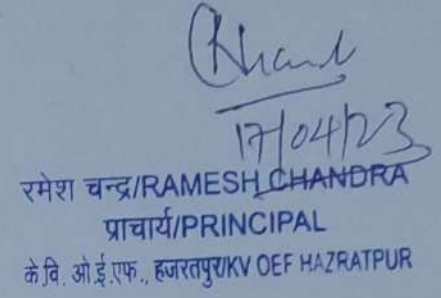 RChand
17/04/23
रमेश चन्द्र/RAMESH CHANDRA
प्राचार्य/PRINCIPAL
के.वि. ओ.ई.एफ., हजरतपुर/KV OEF HAZRATPUR